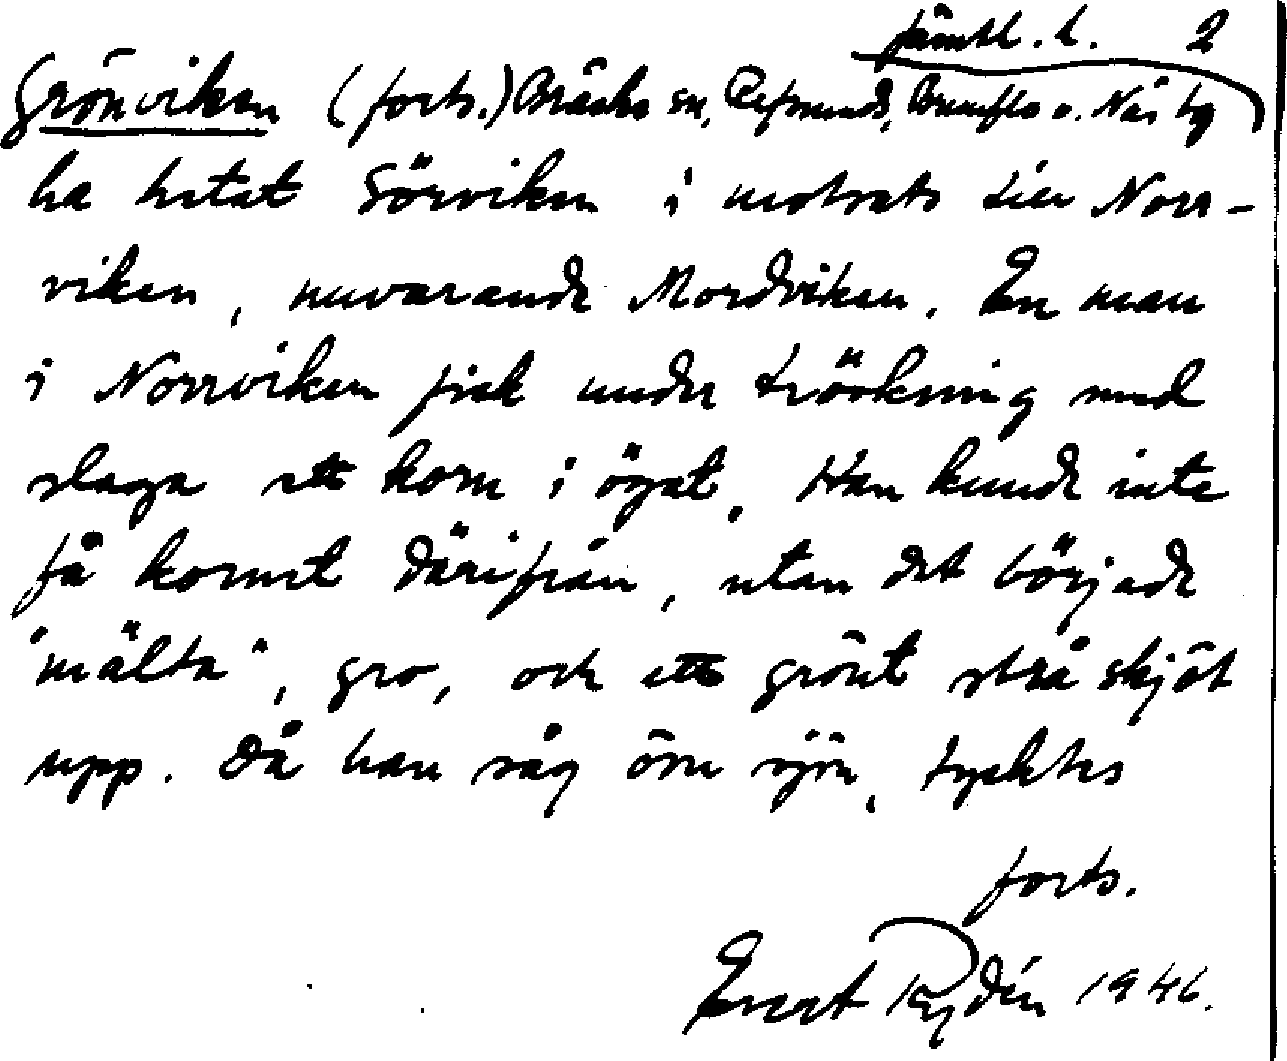 Jämtl. l. 2
Grönviken (forts.) Bräcke sn, Refsunds, Brunflo o. Näs tg
ha hetat Sörviken i motsats till Norr-
viken, nuvarande Mordviken. En man
i Norrviken fick under tröskning med
slaga ett korn i ögat. Han kunde inte
få kornet därifrån, utan det började
"mälta", gro, och ett grönt strå skjöt
upp. Då han såg över sjön, tycktes
forts.
Evert Rydén 1946.